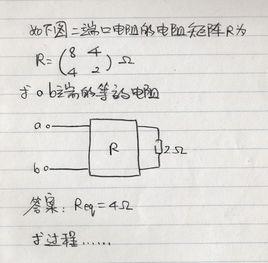 如下图二端口电阻的电阻矩阵R为
R=(8 4
4 2)Ω
求ab端的等效电阻
a
R
2Ω
b
答案：Req=4Ω
求过程……